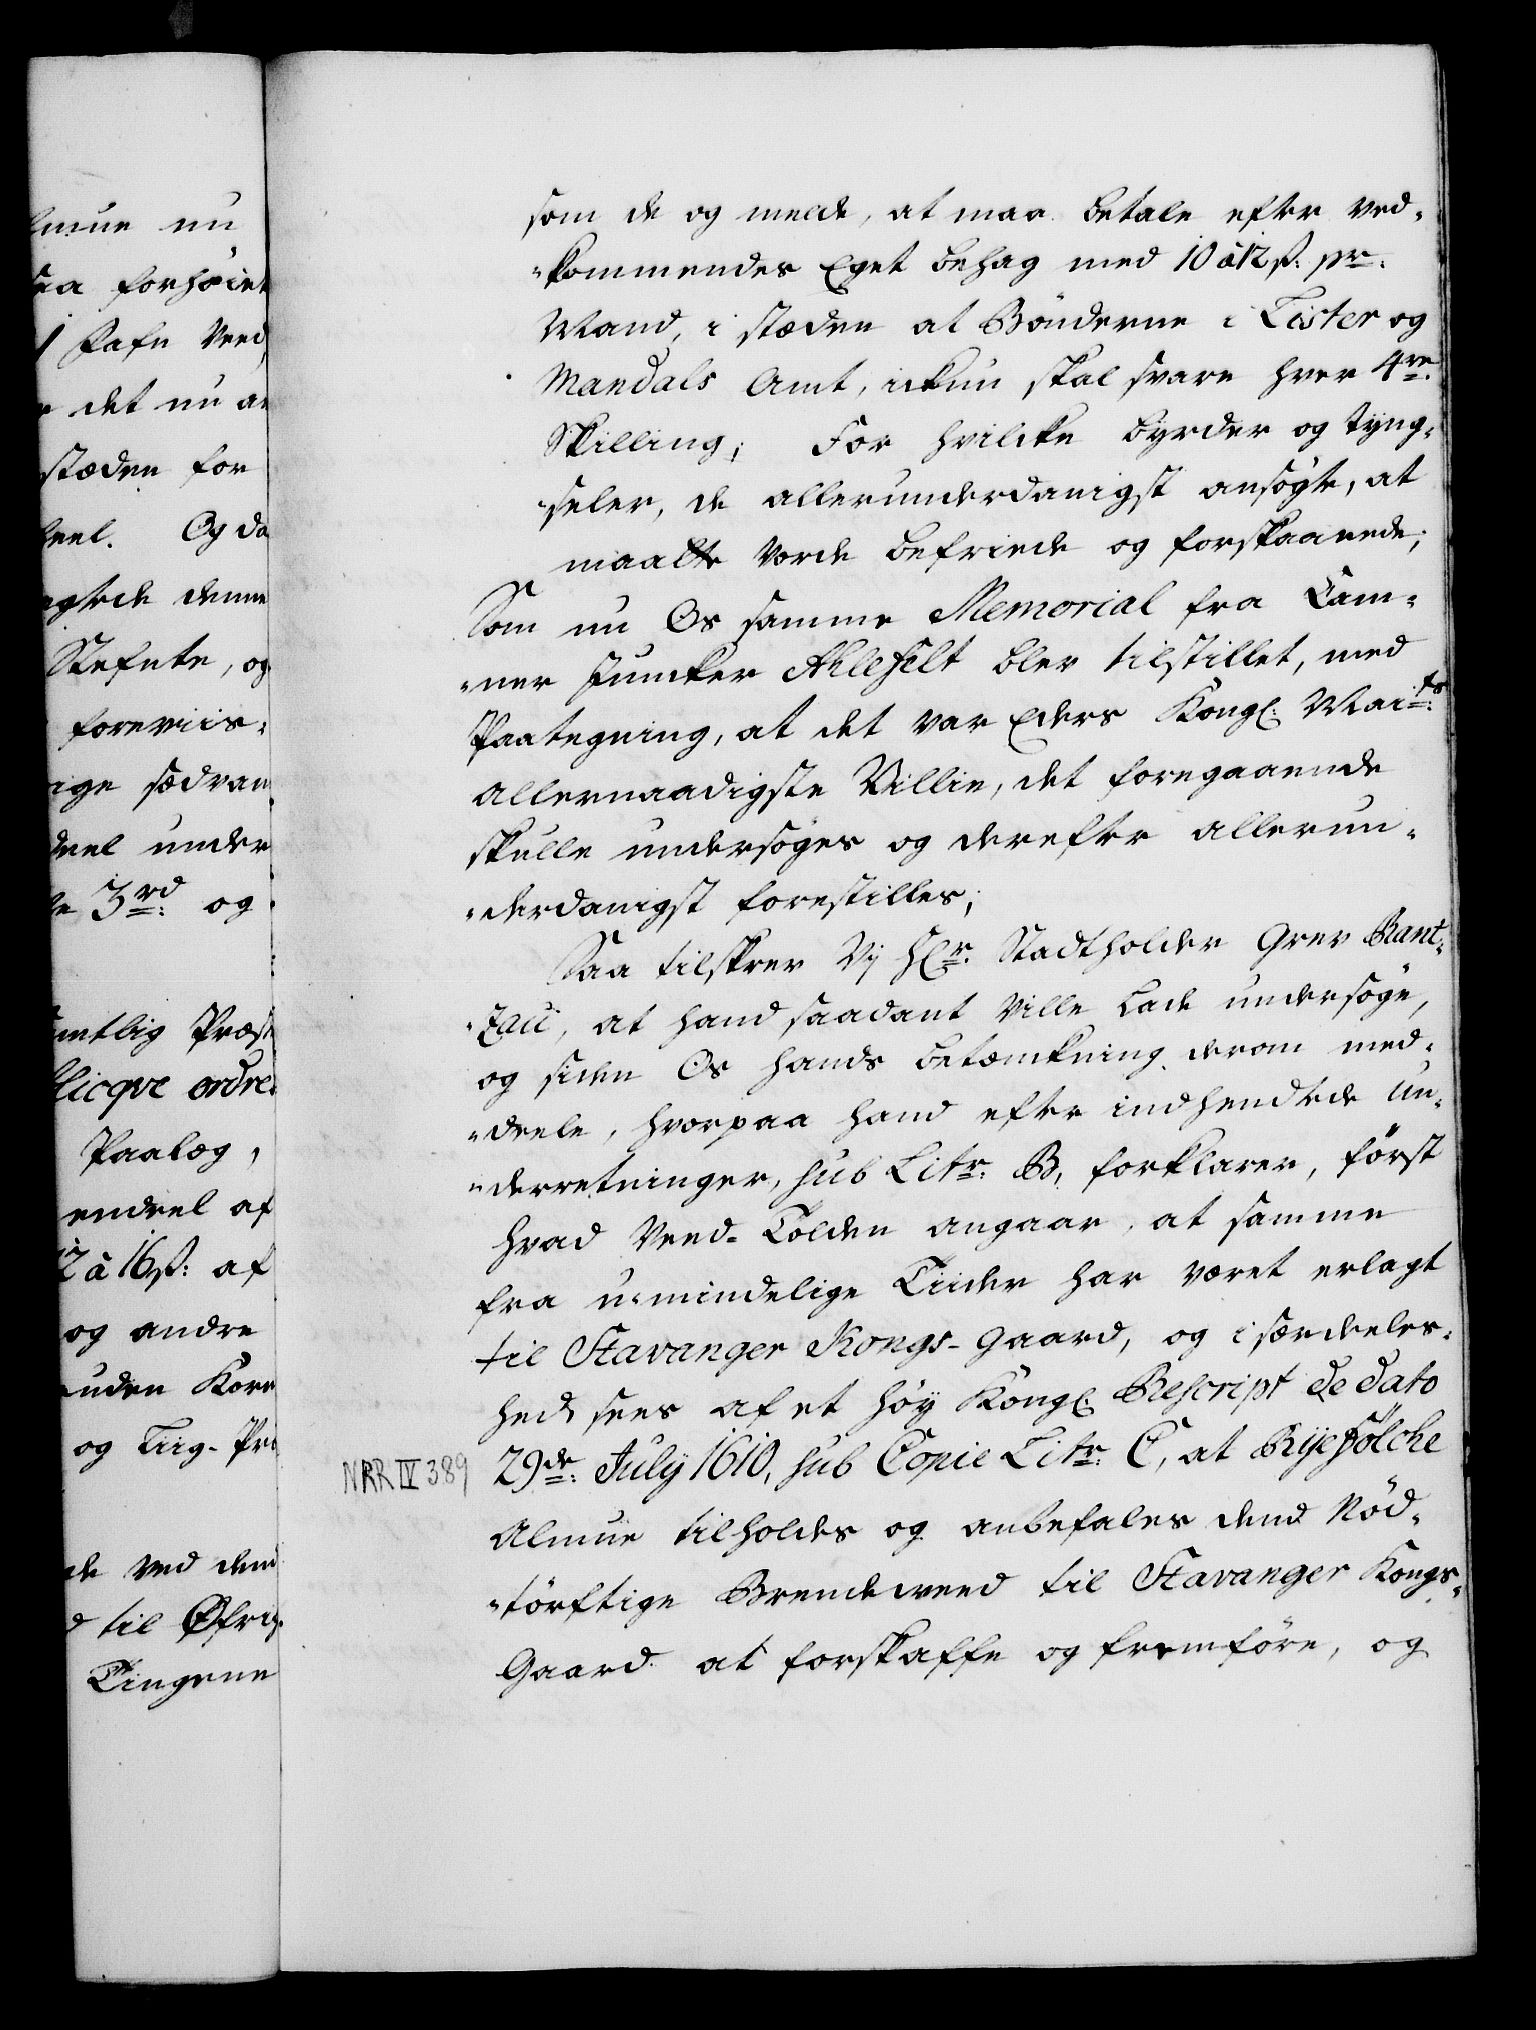 lmue nu
saa forhöiet
1 Fafn Veed,
det nu an
stæden for
heel. Og da
agtede denne
Stefnte, og
foreviis-
ige sædvan
deel under
3rd: og
mtlig Præst
licqve ordre
Paalæg,
endeel af
12 à 16 ß: af
og andre
uden Korn
og Tiig-Pri
de ved dend
til Öfrig
Tingene
som de og meede, at maa betale efter ved-
-kommendes Eget behag med 10 à 12 ß: pr:
Mand, i stæden at Bönderne i Lister og
Mandals Amt, ickun skal svare hver 4re:
Skilling; For hvilcke byrder og tyng-
seler, de allerunderdanigst ansögte, at
maatte vorde befriede og forskaanede;
Som nu Os samme Memorial fra Cam-
-mer Juncker Ahlefelt blev tilstillet, med
Paategning, at det var Eders Kongl: Maits:
allernaadigste Villie, det foregaaende
skulle undersöges og derefter allerun-
-derdanigst forestilles;
Saa tilskrev Vÿ Hr: Stadtholder Grev Rant-
-zau, at hand saadant ville lade undersöge,
og siden Os hands betænkning derom med-
-deele, hvorpaa hand efter indhendtede Un-
-derretninger, sub Litr: B, forklarer, först
hvad Veed-Tolden angaar, at samme
fra u-mindelige Tiider har været erlagt
til Stavanger Kongs-Gaard, og i særdeeles-
hed sees af et höÿ Kongl: Rescript de dato
29de: Julÿ 1610, sub Copie Litr: C, at Rÿefölcke
NRR IV 389
Almue tilholdes og anbefales dend Nöd-
-törftige Brendeveed til Stavanger Kongs-
Gaard at forskaffe og fremföre, og